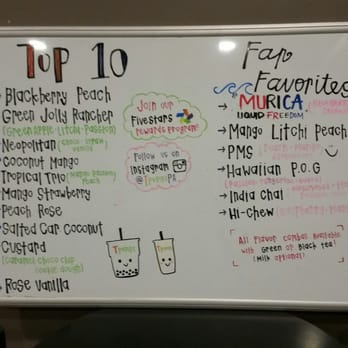 Top 10
Blackberry Peach
Green Jolly Rancher
(Green Apple-Litchi-Passion)
Neopolitan
Coconut Mango
Tropical Trio
Mango Strawberry
Peach Rose
Salted Car Coconut
Custard
(Caramel choco chip
cookie dough)
Rose Vanilla
Join our
Fivestars
rewards program!
Follow us on
Instagram
Fan
Favorites
MURICA
LIQUID FREEDOM
Mango Litchi Peach
PMS
Hawaiian P.O.G
India Chai
Hi-Chew
All flavor combos available
with Green or Black tea!
(Milk optional)